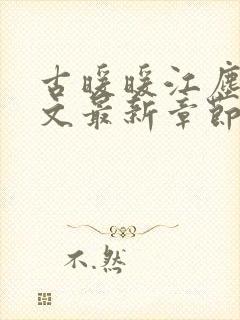 古暖暖江尘
文最新章節
不.然